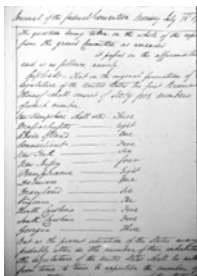 Journal of the federal Convention Monday July 16. 87
The question being taken on the whole of the report
from the grand Committee as amended
it passed in the affirmative
and is as follows, namely,
Resolved - That in the original formation of the
Legislature of the United States the first Branch
thereof shall consist of Sixty five members
of which number
New Hampshire shall send - Three
Massachusetts - Eight
Rhode Island - One
Connecticut - Five
New York - Six
New Jersey - Four
Pennsylvania - Eight
Delaware - One
Maryland - Six
Virginia - Ten
North Carolina - Five
South Carolina - Five
Georgia - Three
But as the present situation of the States may
probably alter in the number of their inhabitants
the Legislature of the United States shall be authorised
from time to time to apportion the number of